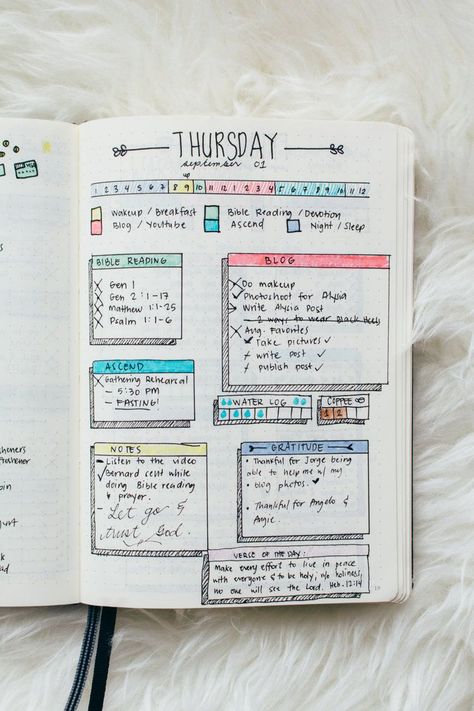 THURSDAY
september 01
up
1 2 3 4 5 6 7 8 9 10 11 12 1 2 3 4 5 6 7 8 9 10 11 12
Wakeup / Breakfast
Bible Reading / Devotion
Blog / Youtube
Ascend
Night / Sleep
BIBLE READING
Gen 1
Gen 2 : 1-17
Matthew 1:1-25
Psalm 1:1-6
BLOG
Do makeup
Photoshoot for Alysia
Write Alysia Post
- 2 ways to wear Black Heels
Aug. Favorites
Take pictures ✓
write post ✓
publish post ✓
ASCEND
Gathering Rehearsal
- 5:30 PM
- FASTING!
WATER LOG
COFFEE
1 2
NOTES
- Listen to the video
Bernard sent while
doing Bible reading
& prayer.
- Let go &
trust God.
GRATITUDE
• Thankful for Jorge being
able to help me w/ my
blog photos.
• Thankful for Angelo &
Angie.
VERSE OF THE DAY:
Make every effort to live in peace
with everyone & to be holy; w/o holiness,
no one will see the Lord. Heb. 12:14
19